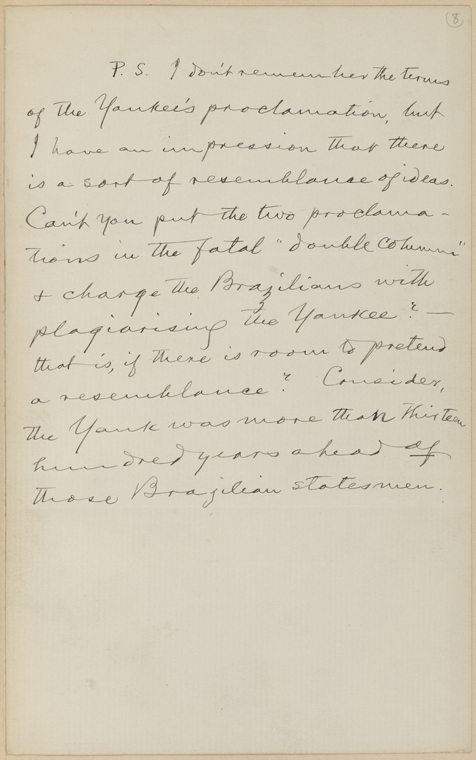 8
P. S. I don't remember the terms
of the Yankee's proclamation, but
I have an impression that there
is a sort of resemblance of ideas.
Can't you put the two proclama-
tions in the fatal "double column"
& charge the Brazilians with
plagiarising the Yankee? —
that is, if there is room to pretend
a resemblance? Consider,
the Yank was more than thirteen
hundred years ahead of
those Brazilian statesmen.